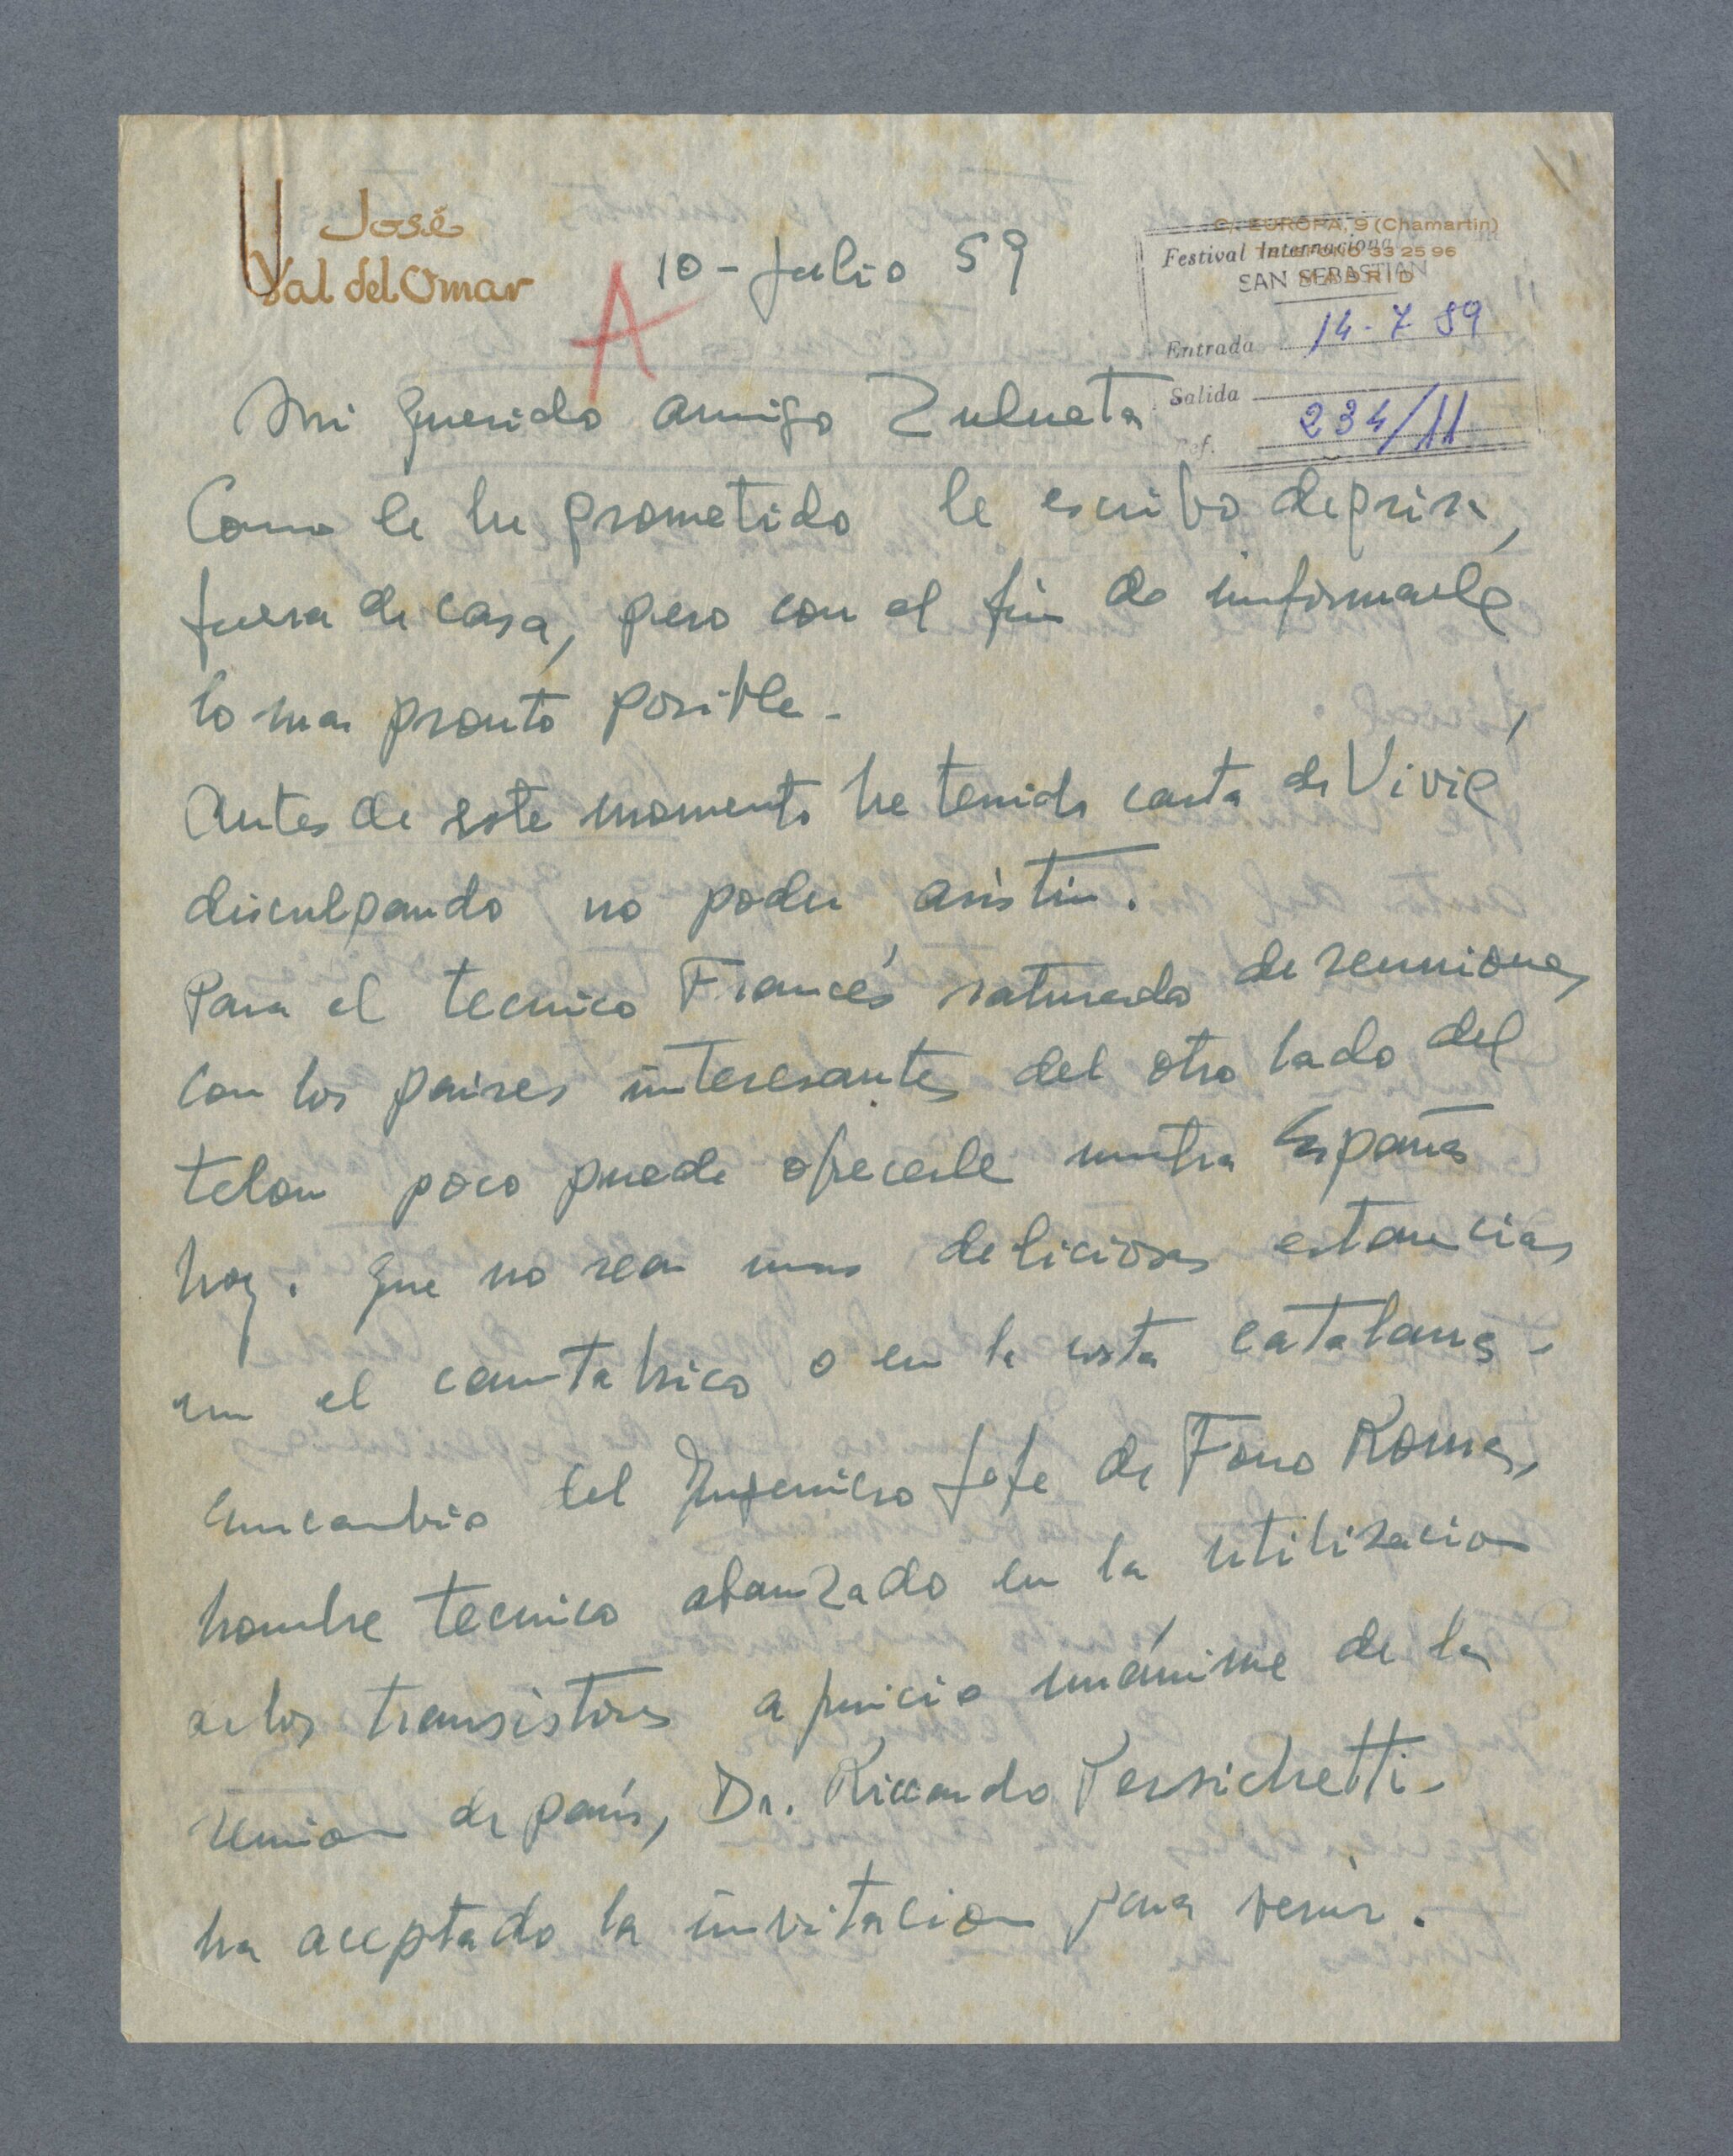 José
Val del Omar
C/. EUROPA, 9 (Chamartin)
TELEFONO 33 25 96
MADRID
Festival Internacional
SAN SEBASTIAN
Entrada 14-7-59
Salida
Ref. 234/11
A
10-Julio 59
Mi querido amigo Zulueta
Como le he prometido le escribo deprisa,
fuera de casa, pero con el fin de informarle
lo mas pronto posible.
Antes de este momento he tenido carta de Vivié
disculpando no poder asistir.
Para el tecnico Francés saturado de reuniones
con los paises interesantes del otro lado del
telon poco puede ofrecerle nuestra España
hoy. Que no sean unas deliciosas estancias
en el cantabrico o en la costa catalana.
Encambio el Ingeniero Jefe de Fono Roma,
hombre tecnico abanzado en la utilizacion
de los transistores a juicio unánime de la
reunion de parís, Dr. Riccardo Persichetti.
ha aceptado la invitacion para venir.